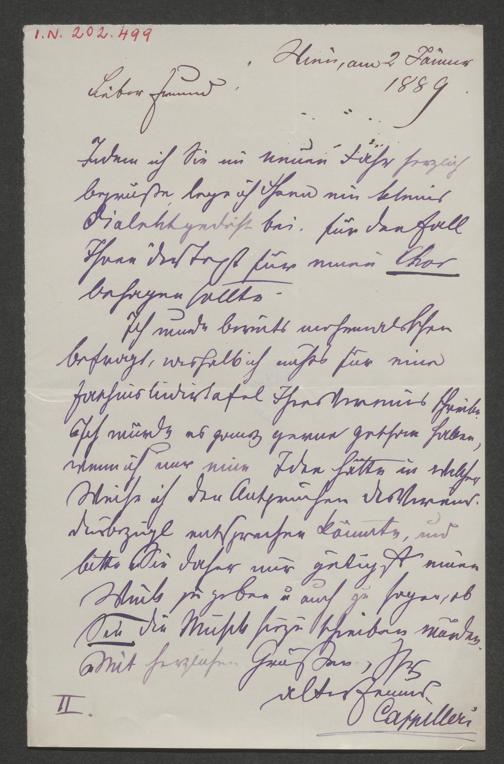 I.N. 202.499
Wien, am 2 Jänner
1889.
Lieber Freund
Indem ich Sie im neuen Jahr herzlich
begrüße, lege ich Ihnen ein kleines
Dialektgedicht bei. für den Fall
Ihnen der Text für einen Chor
behagen sollte.
Ich wurde bereits mehrmals schon
befragt, weshalb ich nichts für eine
Faschingsliedertafel Ihres Vereines schreibe.
Ich würde es ganz gerne gethan haben,
wenn ich nur eine Idee hätte in welcher
Weise ich den Ansprüchen des Vereins
diesbezügl entsprechen könnte, und
bitte Sie daher mir gütigst einen
Wink zu geben u auch zu sagen, ob
Sie die Musik hiezu schreiben würden.
Mit herzlichen Grüßen, Ihr
alter Freund
Cappilleri
II.